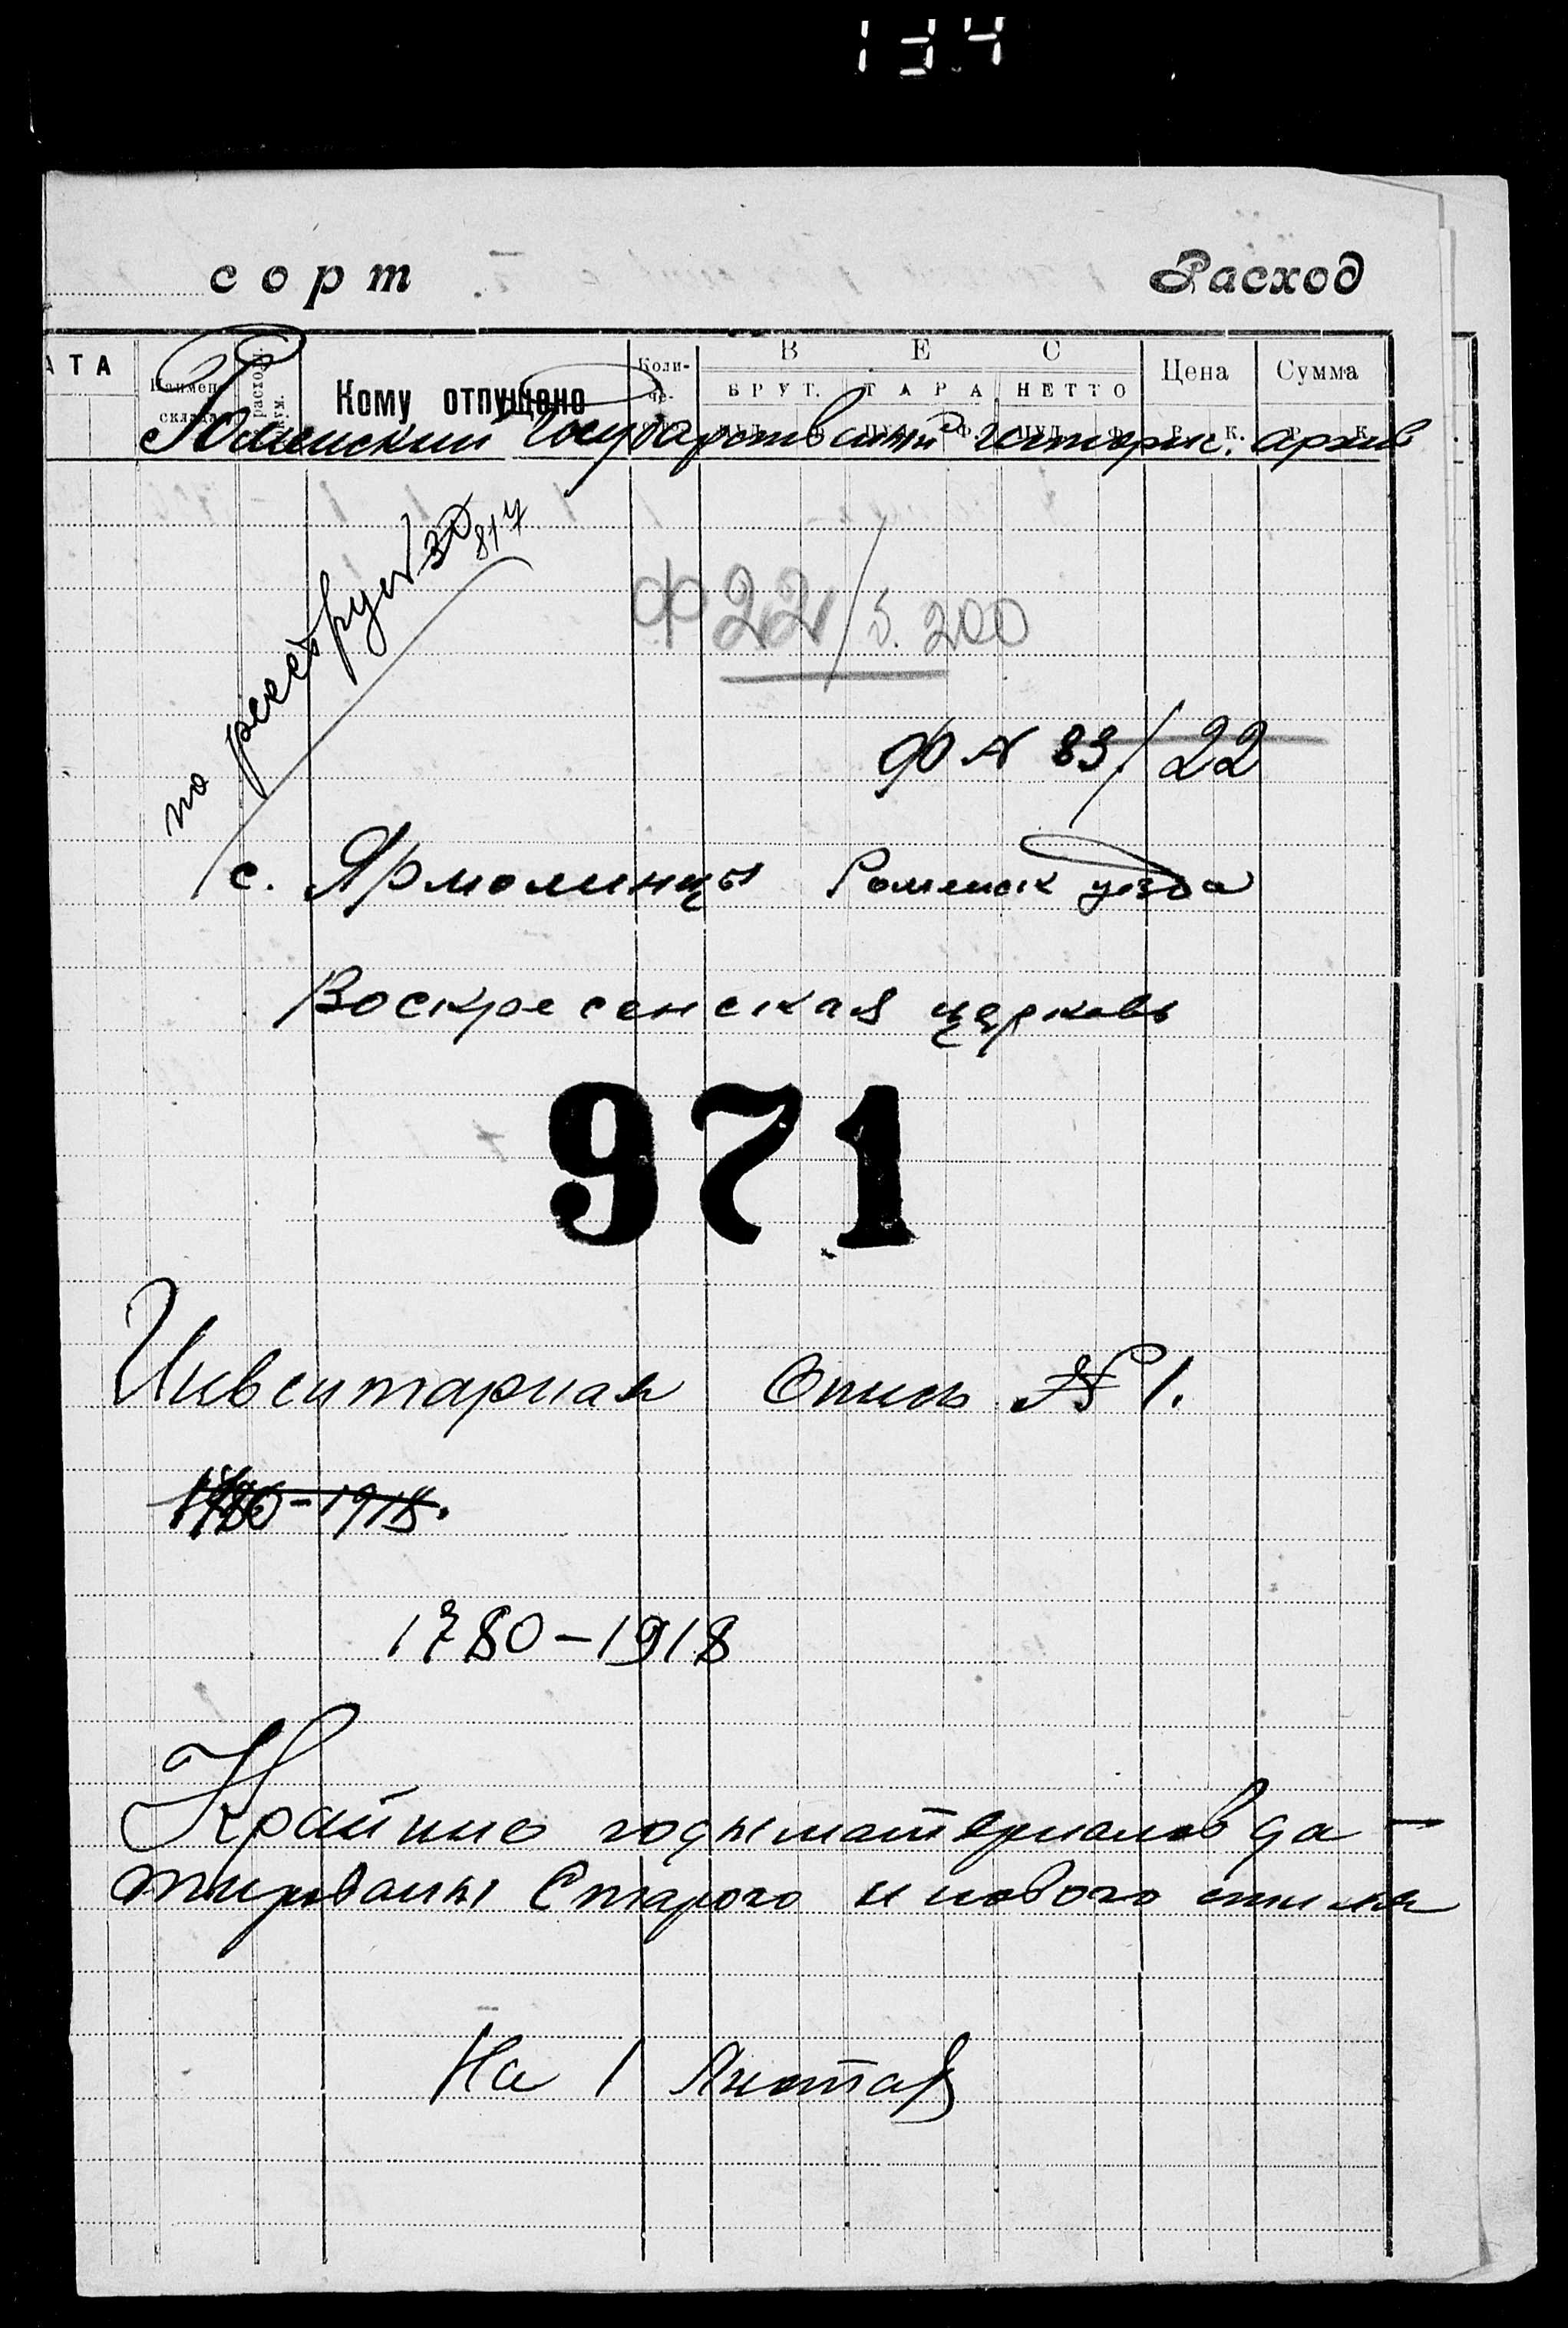 134
сорт Расход
АТА Наимен. склада расход. Кому отпущено Коли-че- ВЕС БРУТ. ТАРА НЕТТО Цена Сумма
Роменский Государственный историк. архив
по реестру № 30 817
Ф 22/5. 200
Ф № 83/22
с. Ярмолинцы Роменск уезда
Воскресенская церковь
971
Инвентарная Опись № 1.
1780-1918.
1780-1918
Крайние годы материалов да-
тированы старого и нового стиля
На 1